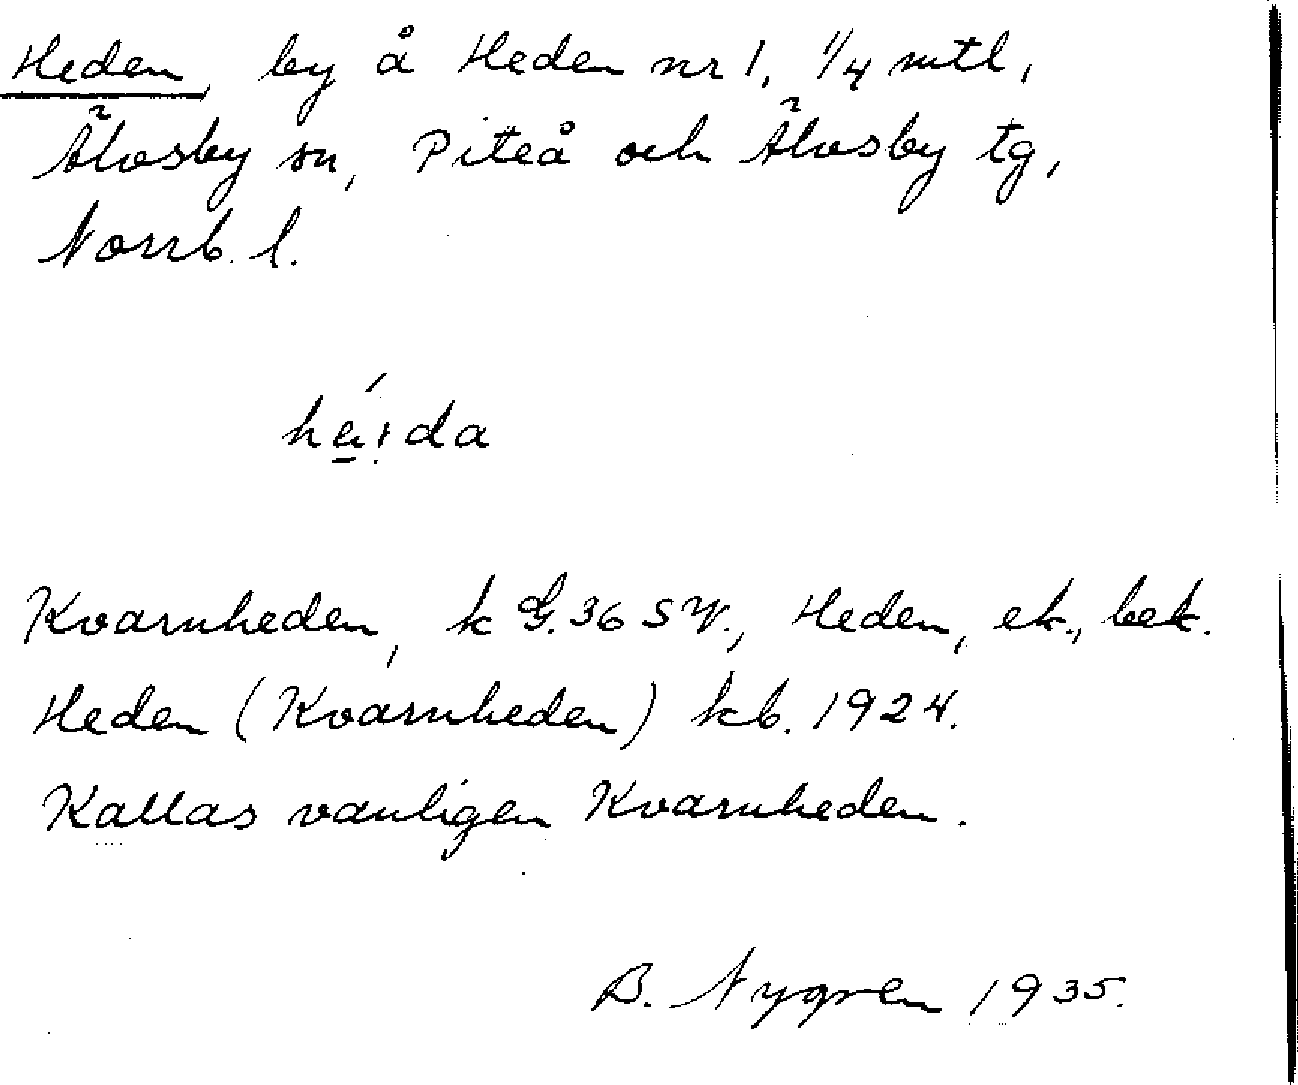 Heden, by å Heden nr 1, 1/4 mtl,
Älvsby sn, Piteå och Älvsby tg,
Norrb. l.
Kvarnheden, k G. 36 SV., Heden, ek., bek.
Heden (Kvarnheden) kb. 1924.
Kallas vanligen Kvarnheden.
B. Nygren 1935.